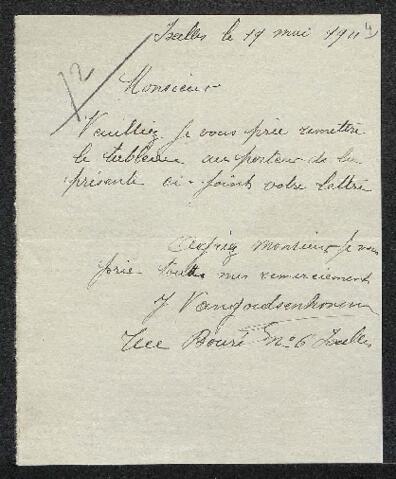 Ixelles le 19 mai 1914
12
Monsieur
Veuilliez Je vous prie remettre
le tableau au porteur de la
présente ci-joint votre lettre
Monsieur Je vous
prie toutes mes remerciement
J Vangoidsenhoven
Rue Bouré No 6 Ixelles